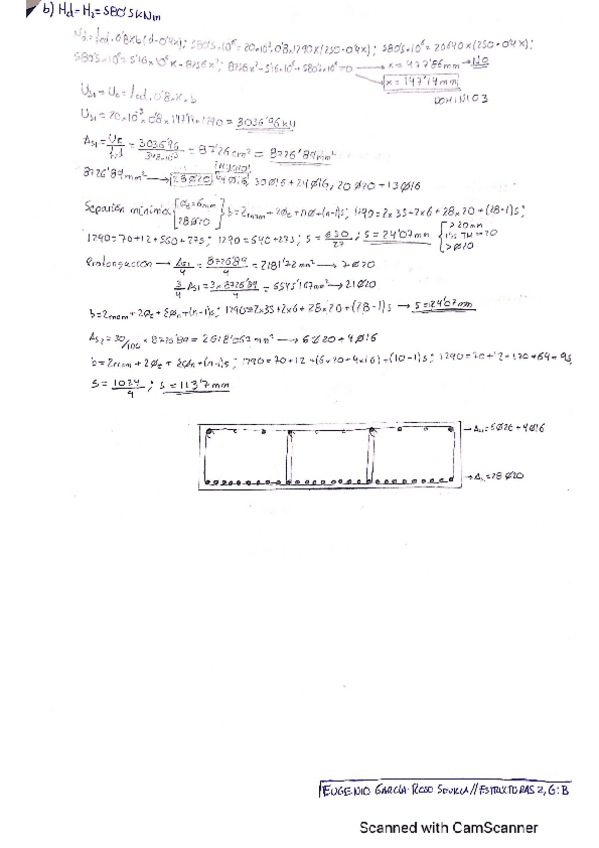 b) Hd = H2 = 580'5 kNm
Md = fcd · 0'8xb (d-0'4x); 580'5·10⁶ = 20·10³·0'8·1290x(250-0'4x); 580'5·10⁶ = 20640x(250-0'4x);
580'5·10⁶ = 5'16·10⁶x - 8256x²; 8256x² - 5'16·10⁶x + 580'5·10⁶ = 0 → x = 477'86mm → NO
→ x = 147'14mm
DOMINIO 3
Us1 = Uc = fcd · 0'8 · x · b
Us1 = 20·10⁻³·0'8·147'14·1290 = 3036'96 kN
As1 = Uc/fyd = 3036'96/348·10⁻³ = 87'26cm² = 8726'89mm²
8726'89mm² → 28Ø20, 30Ø16 + 24Ø16, 20Ø20 + 13Ø16
Separación mínima [Øc = 6mm 28Ø20] b = 2rnom + 2Øc + nØ + (n-1)s; 1290 = 2x35 + 2x6 + 28x20 + (28-1)s;
1290 = 70+12+560+27s; 1290 = 640+27s; s = 650/27; s = 24'07mm { > 20mm 1'25 TM = 20 > Ø20
Prolongación → As1/4 = 8726'89/4 = 2181'72mm² → 7Ø20
3/4 As1 = 3x8726'89/4 = 6545'167mm² → 21Ø20
b = 2rnom + 2Øc + ΣØn + (n-1)s; 1290 = 2x35 + 2x6 + 28x20 + (28-1)s → s = 24'07mm
As2 = 30/100 x 8726'89 = 2618'067mm² → 6Ø20 + 4Ø16
b = 2rnom + 2Øc + ΣØn + (n-1)s; 1290 = 70+12+(6x20+4x16)+(10-1)s; 1290 = 70+12+120+64+9s
s = 1024/9; s = 113'7mm
→ As2 = 6Ø20 + 4Ø16
→ As1 = 28Ø20
EUGENIO GARCÍA-ROJO // ESTRUCTURAS 2, G:B
Scanned with CamScanner